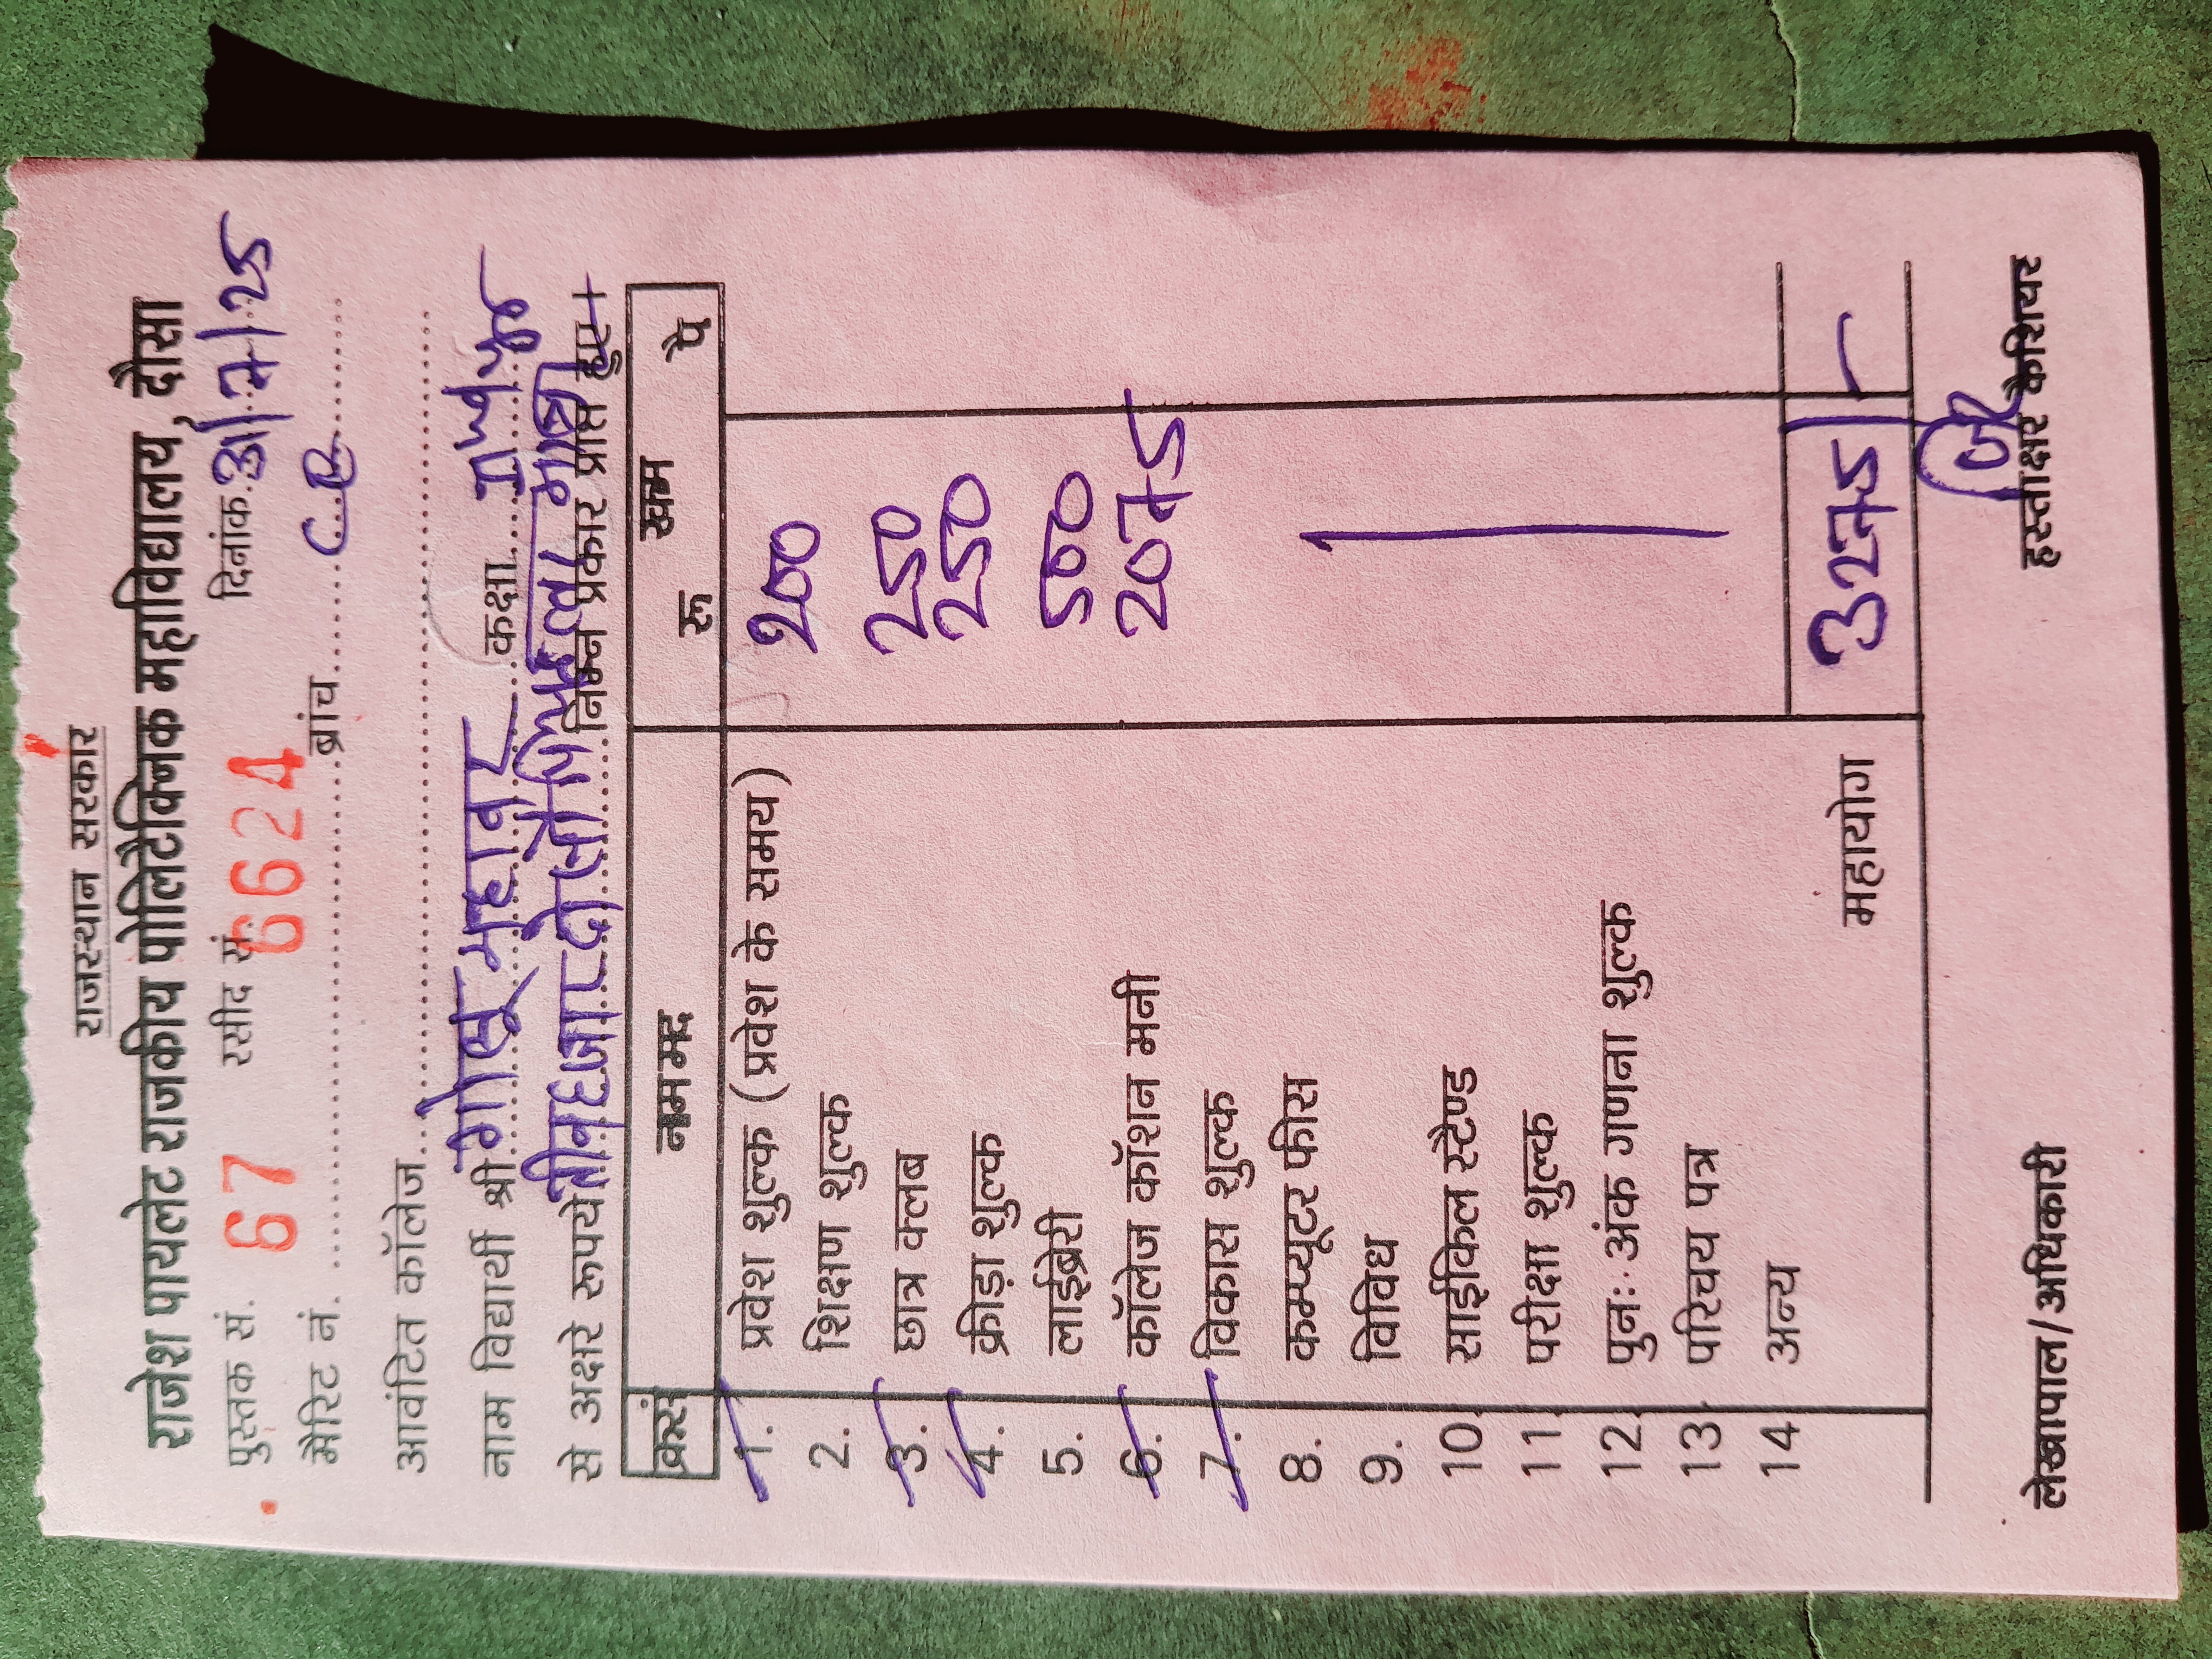 राजस्थान सरकार
राजेश पायलेट राजकीय पोलिटैक्निक महाविद्यालय, दौसा
पुस्तक सं. 67 रसीद सं. 6624 दिनांक 31/7/25
मैरिट नं. ब्रांच
आवंटित कॉलेज
नाम विद्यार्थी श्री गोलू महावर कक्षा
से अक्षरे रूपये तीन हजार दो सौ मात्र निम्न प्रकार प्राप्त हुए।
क्रसं नाम मद रकम
रू पै
1. प्रवेश शुल्क (प्रवेश के समय) 200
2. शिक्षण शुल्क
3. छात्र क्लब 250
4. क्रीड़ा शुल्क 250
5. लाईब्रेरी
6. कॉलेज कॉशन मनी 500
7. विकास शुल्क 2075
8. कम्प्यूटर फीस
9. विविध
10. साईकिल स्टैण्ड
11. परीक्षा शुल्क
12. पुनः अंक गणना शुल्क
13. परिचय पत्र
14 अन्य
महायोग 3275/-
लेखापाल/अधिकारी हस्ताक्षर कैशियर